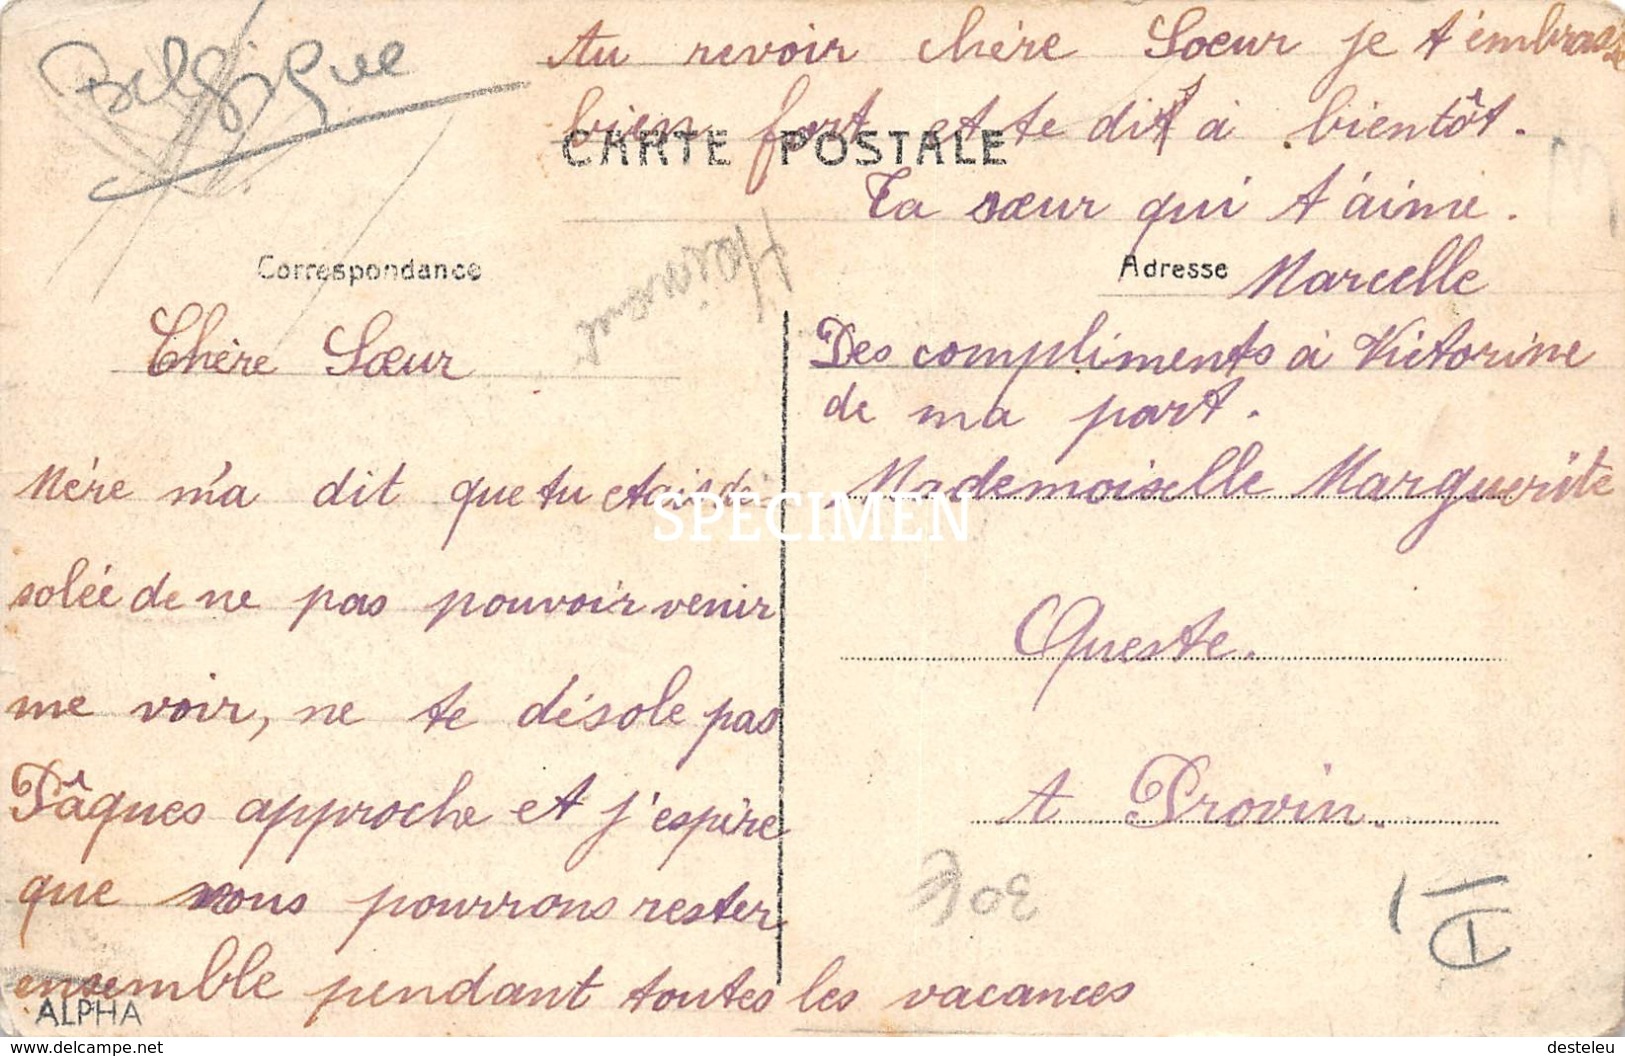 Belgique
CARTE POSTALE
Correspondance
Hainaut
Chère Sœur
Mère m'a dit que tu étais dé
solée de ne pas pouvoir venir
me voir, ne te désole pas
Pâques approche et j'espère
que nous pourrons rester
ensemble pendant toutes les vacances
Au revoir chère Soeur je t'embrasse
bien fort et te dit à bientôt.
Ta sœur qui t'aime.
Adresse
Marcelle
Des compliments à Victorine
de ma part.
Mademoiselle Marguerite
Queste.
A Provin.
SPECIMEN
ALPHA
www.delcampe.net
desteleu